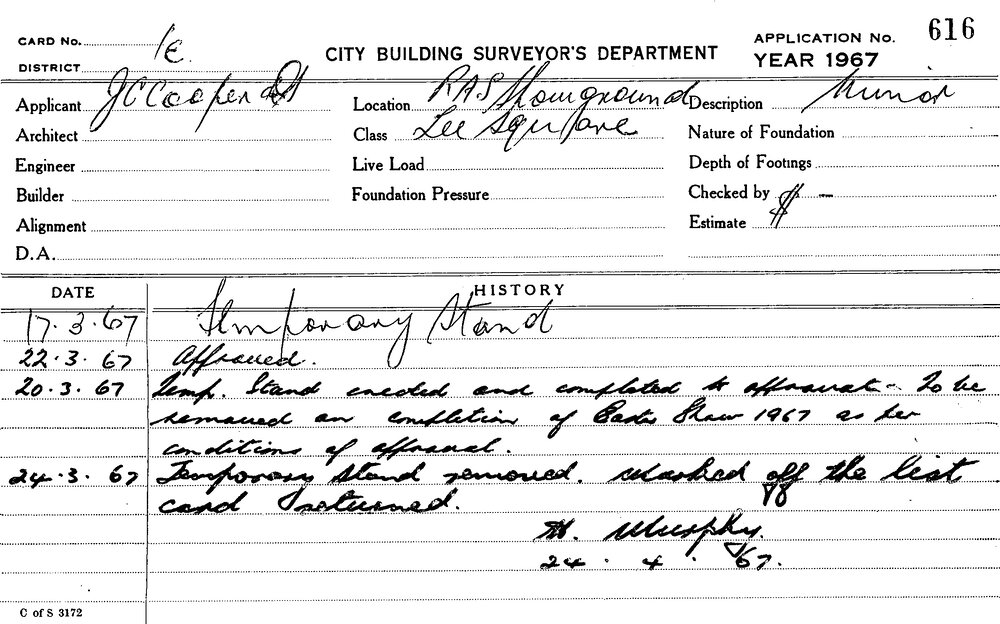 CARD No. 1E.
DISTRICT
CITY BUILDING SURVEYOR'S DEPARTMENT
APPLICATION No. 616
YEAR 1967
Applicant J C Cooper
Location RAS Showground
Description Minor
Architect
Class Lee Square
Nature of Foundation
Engineer
Live Load
Depth of Footings
Builder
Foundation Pressure
Checked by $ —
Alignment
Estimate
D.A.
DATE HISTORY
17.3.67 Temporary Stand
22.3.67 Approved.
20.3.67 Temp. Stand erected and completed to approval - To be
removed on completion of Easter Show 1967 as per
conditions of approval.
24.3.67 Temporary Stand removed. Marked off the list
card returned.
Murphy.
24.4.67.
C of S 3172